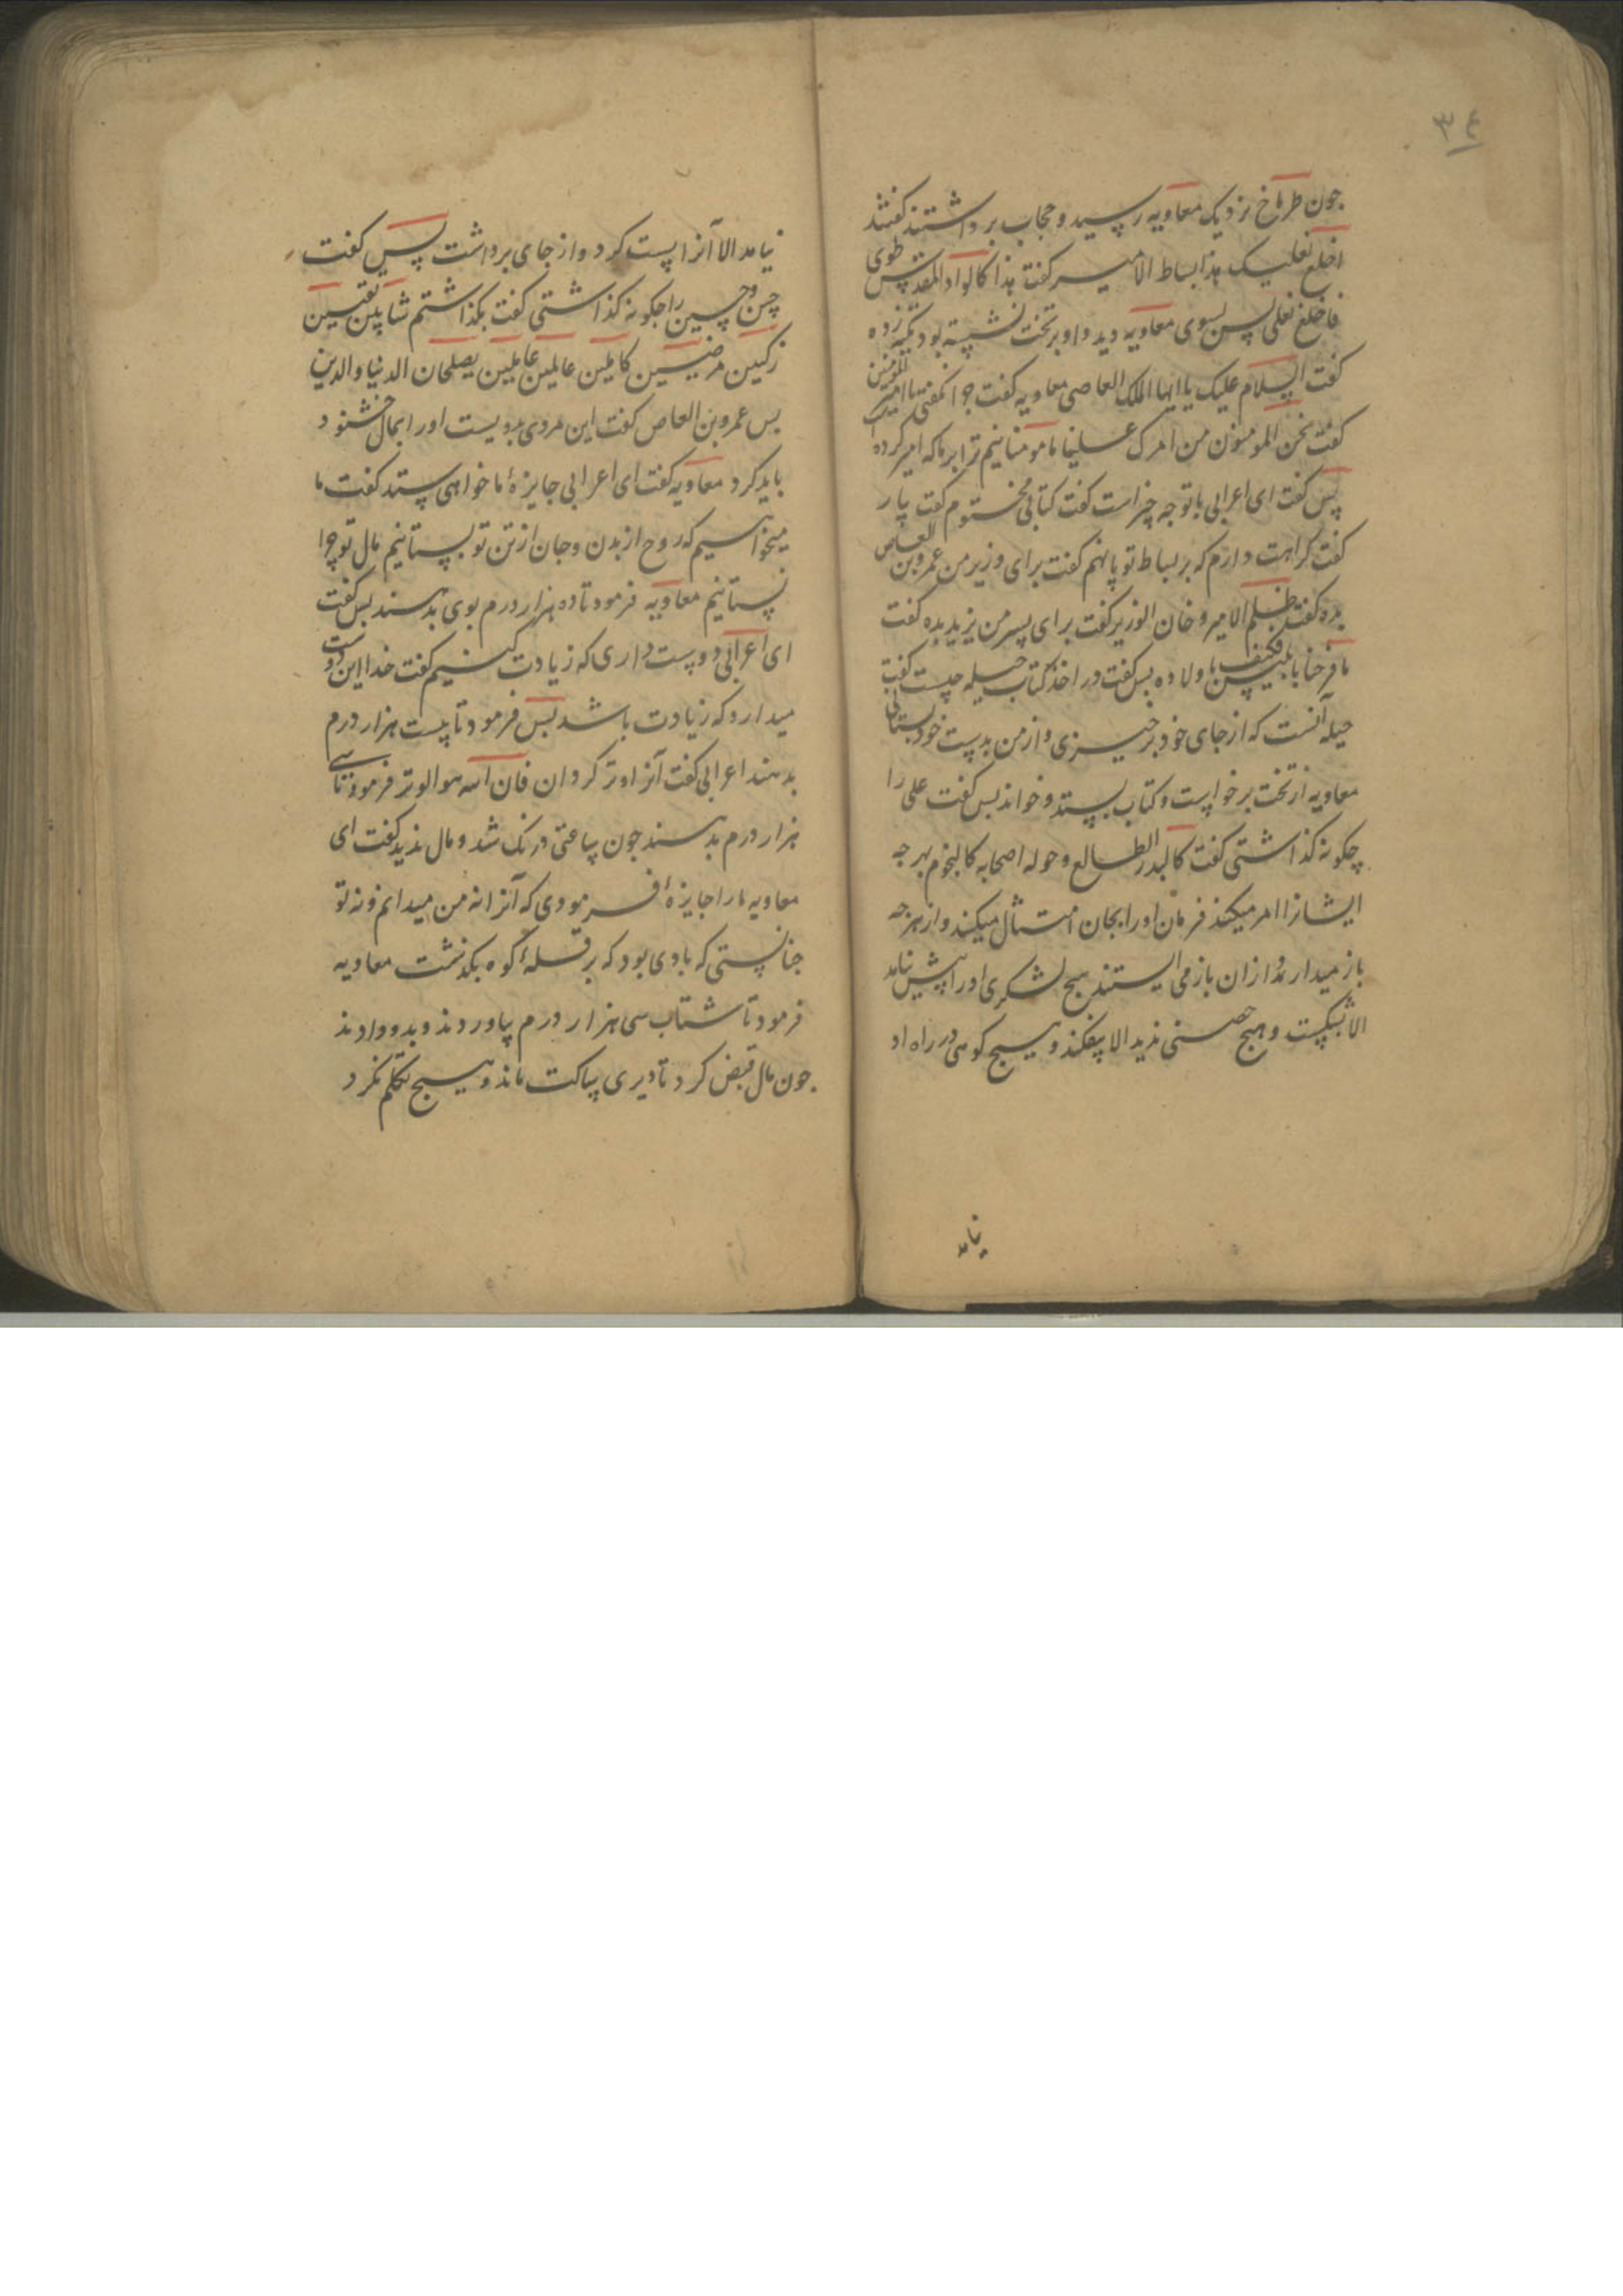 ۳٤
جون طرماخ نزدیک معاویه رسید و حجاب برداشتند کفتند
اخلع نعلیک هذا بساط الامیر کفت هذا کالواد المقدس طوی
فاخلع نعلی پس بسوی معاویه دید و او بر تخت نشسته بود تکیه زده
کفت السلام علیک یا ایها الملک العاصی معاویه کفت جرا نکفتی یا امیر المؤمنین
کفت نحن المومنون من امرک علینا ما مومنانیم ترا بر ما که امیر کرده
پس کفت ای اعرابی با تو جه چیز است کفت کتابی مختوم کفت بیار
کفت کراهت دارم که بر بساط تو پا نهم کفت برای وزیر من عمرو بن العاص
بده کفت ظلم الامیر و خان الوزیر کفت برای پسر من یزید بده کفت
ما فرحنا بابلیس فکیف باولاده بس کفت در اخذ کتاب حیله چیست کفت
حیله آنست که از جای خود برخیزی و از من بدست خود بستانی
معاویه از تخت برخواست و کتاب بستد و خواند بس کفت علی را
چکونه کذاشتی کفت کالبدر الطالع و حوله اصحابه کالنجوم بهر جه
ایشانرا امر میکند فرمان او را بجان امتثال میکنند و از هر جه
باز میدارند از ان باز می ایستند هیج لشکری او را پیش نیامد
الا بشکست و هیج حصنی ندید الا بیفکند و هیسج کوهی در راه او
نیامد
نیامد الا آنرا پست کرد و از جای برداشت پس کفت
حسن و حسین را جکونه کذاشتی کفت بکذاشتم شابین نقیین
زکیین مرضیین کاملین عالمین عاملین یصلحان الدنیا والدین
بس عمرو بن العاص کفت این مردی بدویست او را بمال خشنود
باید کرد معاویه کفت ای اعرابی جایزهٔ ما خواهی ستد کفت ما
میخواهیم که روح از بدن و جان از تن تو بستانیم مال تو چرا
نستانیم معاویه فرمود تا ده هزار درم بوی بدهند بس کفت
ای اعرابی دوست داری که زیادت کنیم کفت خدا این دوست
میدارد که زیادت باشد بس فرمود تا بیست هزار درم
بدهند اعرابی کفت آنرا وتر کردان فان الله هو الوتر فرمود تا سی
هزار درم بدهند جون ساعتی درنک شد و مال ندید کفت ای
معاویه ما را جایزهٔ فرمودی که آنرا نه من میدانم و نه تو
جنانستی که بادی بود که بر قلهٔ کوه بکذشت معاویه
فرمود تا شتاب سی هزار درم بیاوردند و بدو دادند
جون مال قبض کرد تا دیری ساکت ماند و هیسج تکلم نکرد